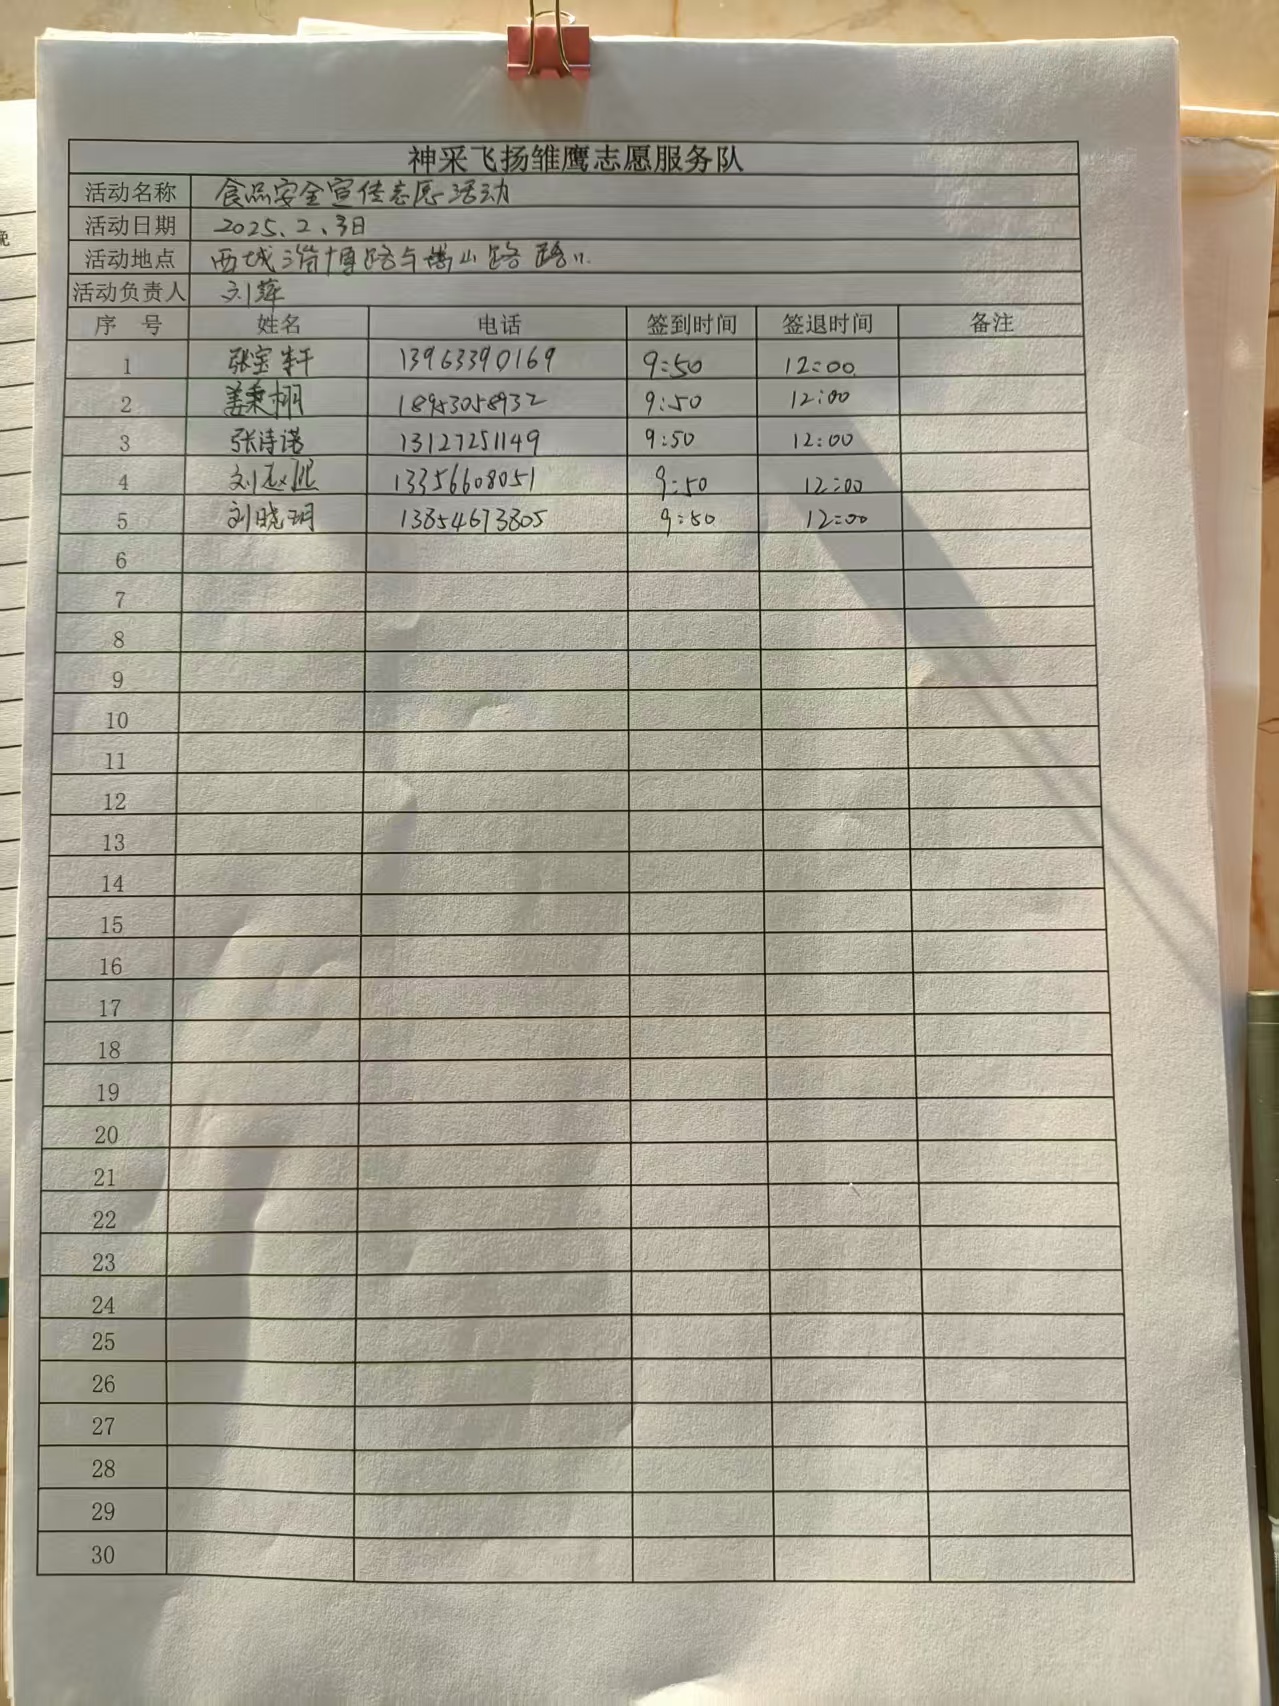 神采飞扬雏鹰志愿服务队
活动名称 食品安全宣传志愿活动
活动日期 2025.2.3日
活动地点 西城淄博路与嵩山路路口
活动负责人 刘萍
序 号 姓名 电话 签到时间 签退时间 备注
1 张宝轩 13963390169 9:50 12:00
2 姜秉栩 18953058932 9:50 12:00
3 张诗诺 13127251149 9:50 12:00
4 刘 13356608051 9:50 12:00
5 刘晓玥 13854673805 9:50 12:00
6
7
8
9
10
11
12
13
14
15
16
17
18
19
20
21
22
23
24
25
26
27
28
29
30